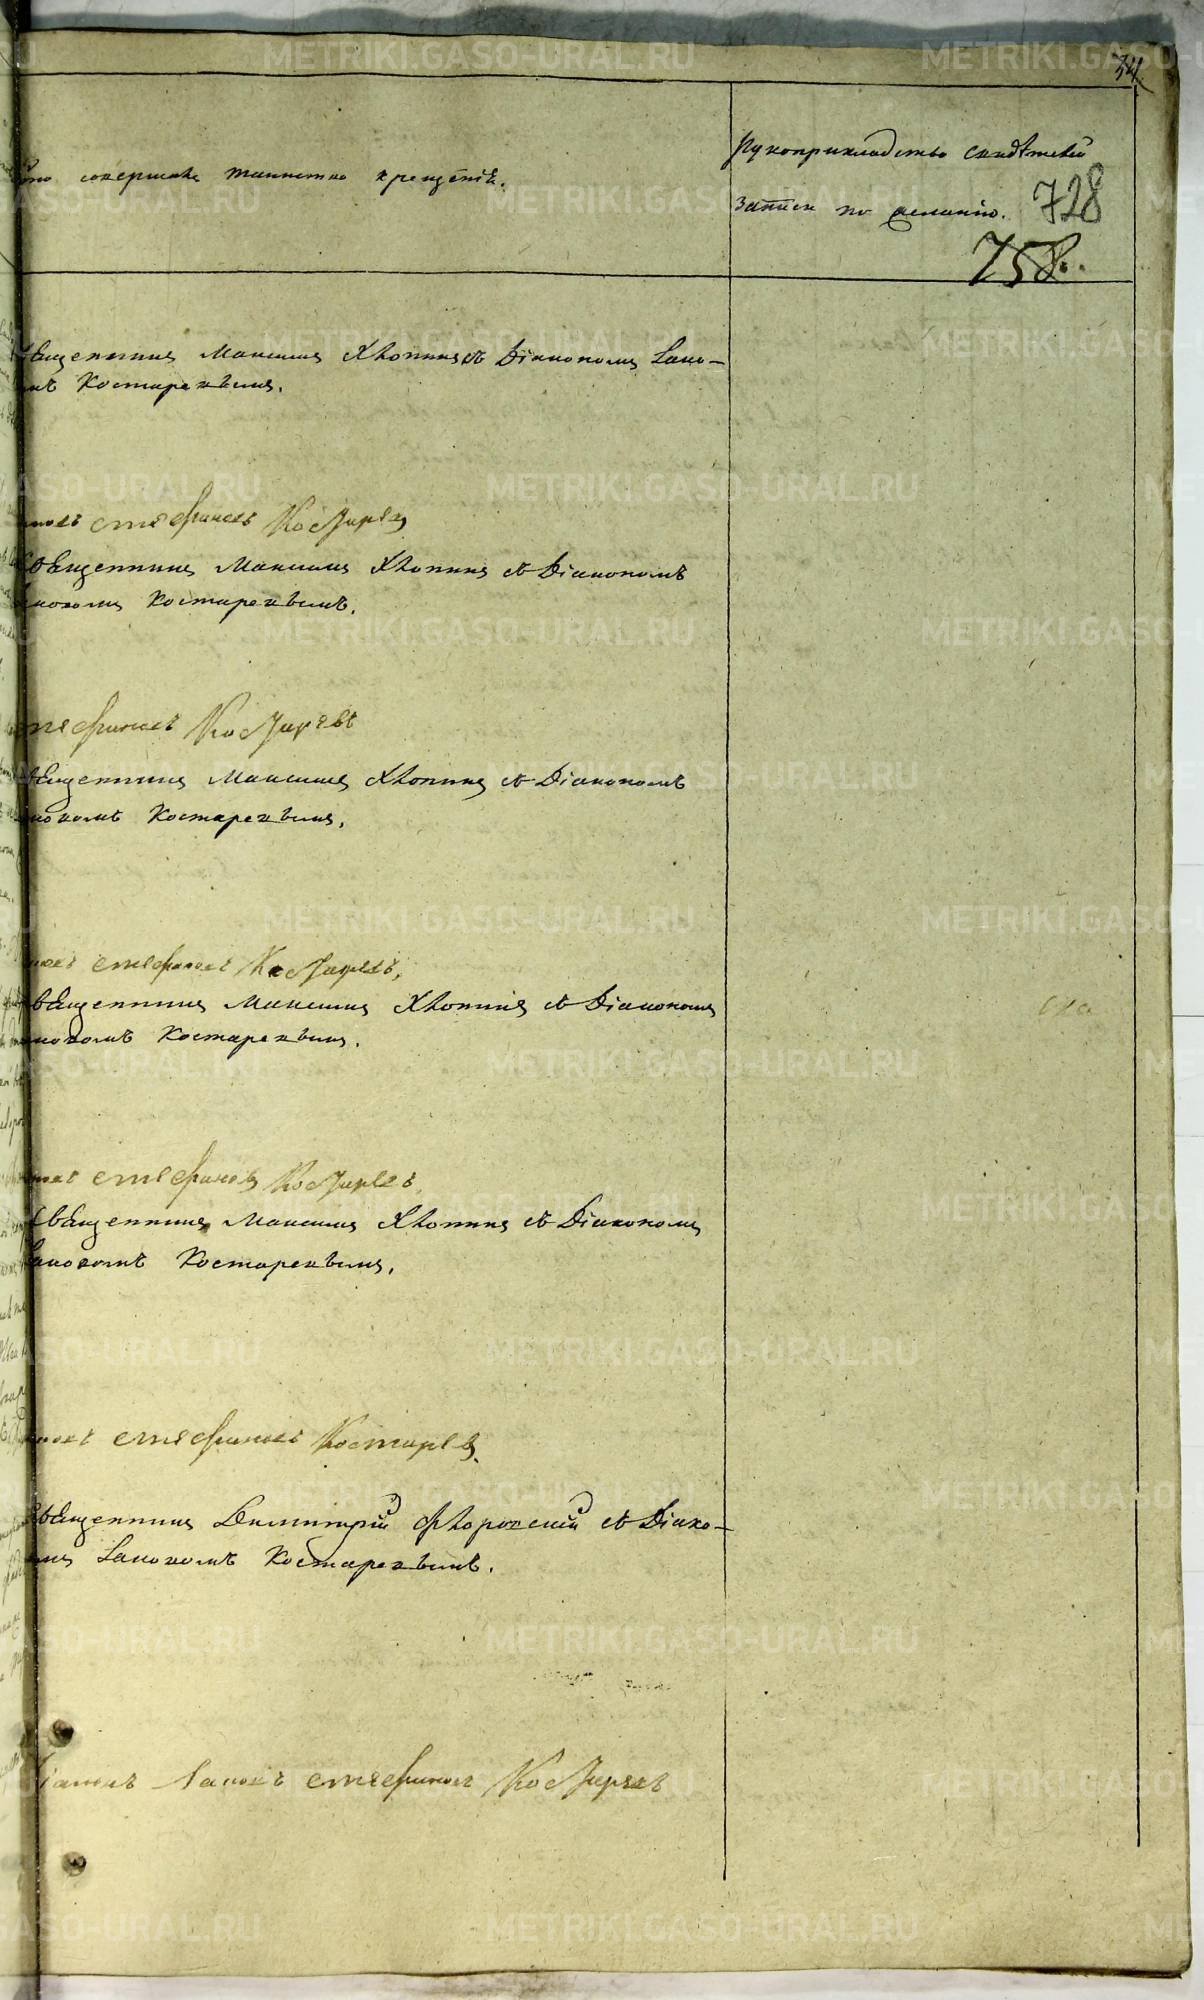 34
совершалъ таинство крещенія.
Рукоприкладство свидѣтелей
записи по желанію. 728
758.
Священникъ Максимъ Хлопинъ съ Діакономъ Іако-
мъ Костаревымъ.
стефановъ Костаревъ
Священникъ Максимъ Хлопинъ съ Діакономъ
Іаковомъ Костаревымъ.
стефановъ Костаревъ
Священникъ Максимъ Хлопинъ съ Діакономъ
Іаковомъ Костаревымъ.
стефановъ Костаревъ.
Священникъ Максимъ Хлопинъ съ Діакономъ
Іаковомъ Костаревымъ.
стефановъ Костаревъ.
Священникъ Максимъ Хлопинъ съ Діакономъ
Іаковомъ Костаревымъ.
стефановъ Костаревъ.
Священникъ Димитрій Флоровскій съ Діако-
Іаковомъ Костаревымъ.
Діаконъ Іаковъ стефановъ Костаревъ